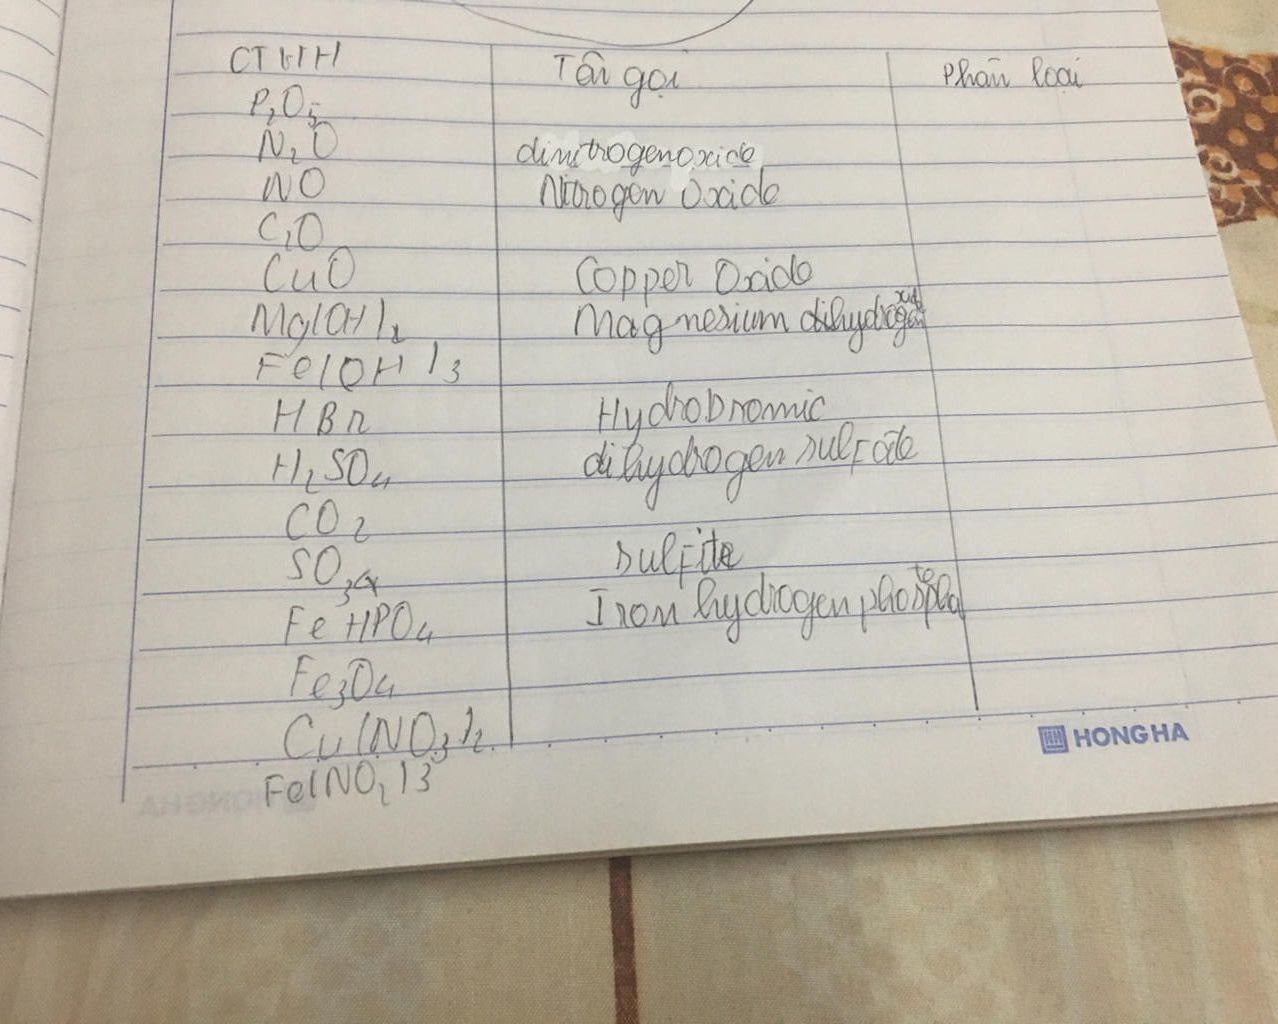 CTHH Tên gọi Phân loại
P2O5
N2O dinitrogenoxide
NO Nitrogen Oxide
C2O
CuO Copper Oxide
Mg(OH)2 Magnesium dihydrogen
Fe(OH)3
HBr Hydrobromic
H2SO4 dihydrogen sulfate
CO2
SO3 sulfite
FeHPO4 Iron hydrogen phosphate
Fe3O4
Cu(NO3)2
Fe(NO2)3
HONG HA